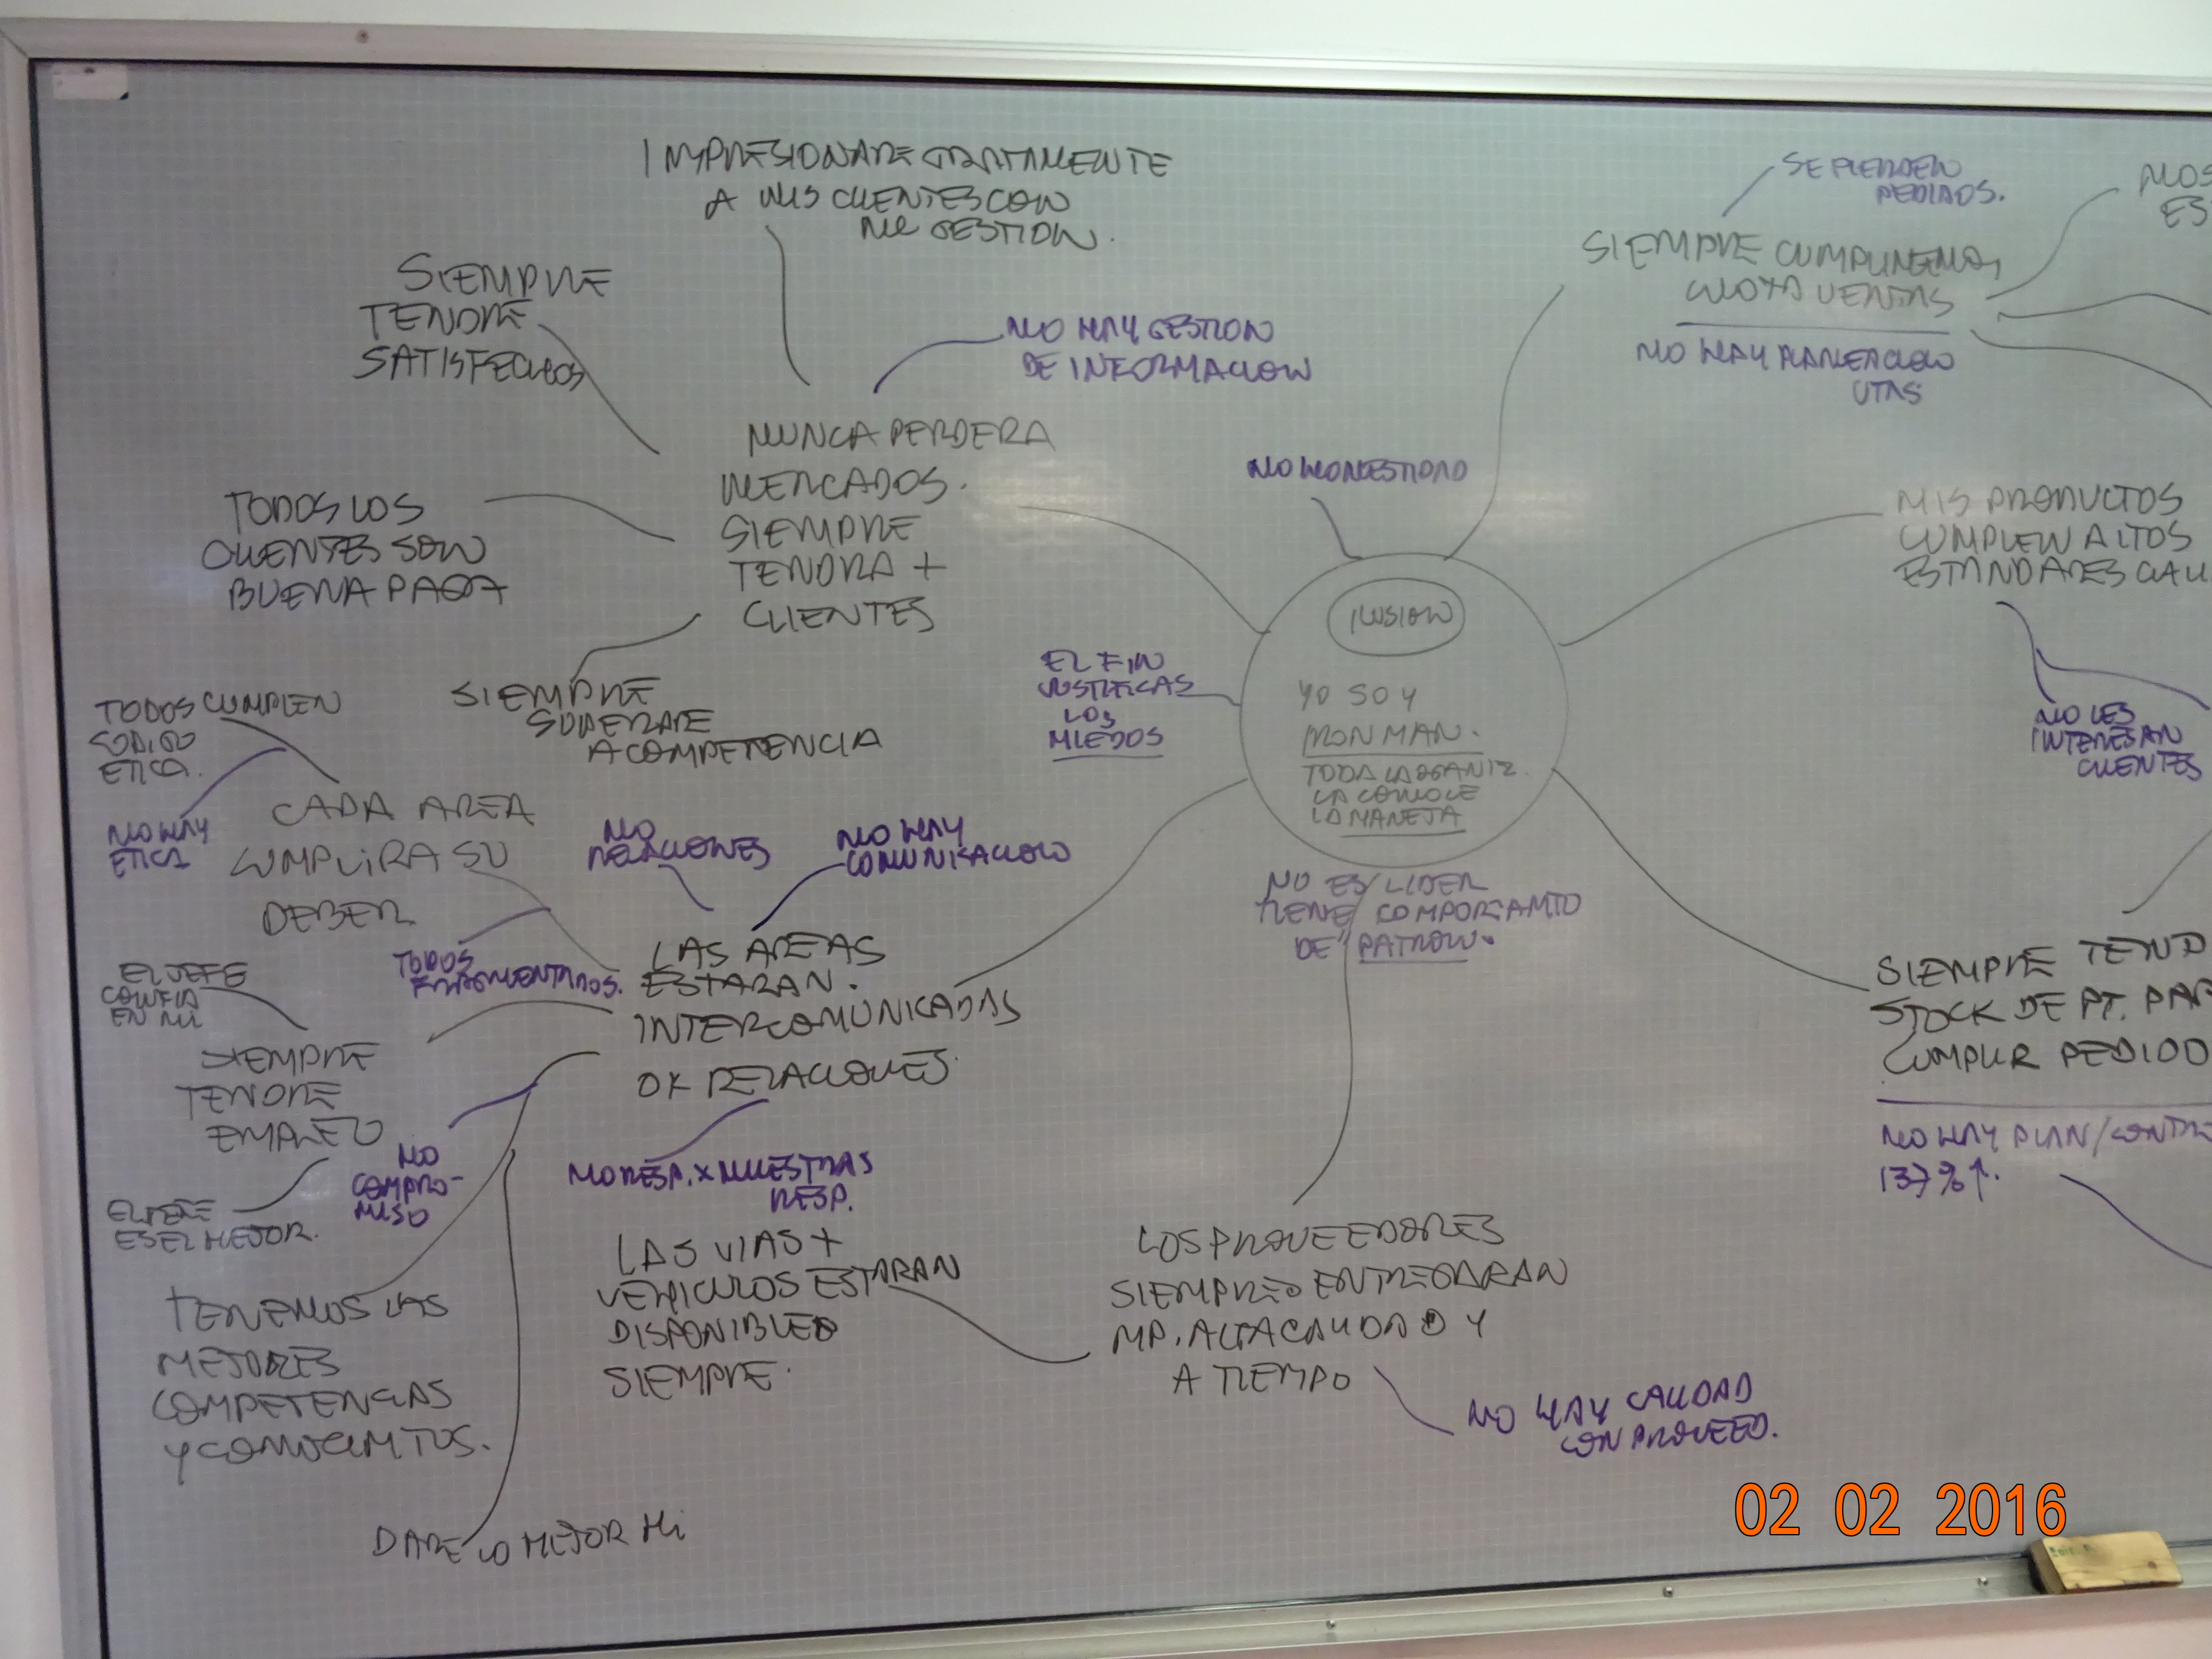 IMPRESIONARE GRATAMENTE
A MIS CLIENTES CON
MI GESTION.
SIEMPRE
TENDRE
SATISFECHOS
NO HAY GESTION
DE INFORMACION
NUNCA PERDERA
MERCADOS.
SIEMPRE
TENDRA +
CLIENTES
TODOS LOS
CLIENTES SON
BUENA PAGA
SIEMPRE
SUPERARE
A COMPETENCIA
SE PIERDEN
PEDIDOS.
NOS
ES
SIEMPRE CUMPLIREMOS
CUOTA VENTAS
NO HAY PLANEACION
VTAS
NO HONESTIDAD
MIS PRODUCTOS
CUMPLEN ALTOS
ESTANDARES CALI
NO LES
INTERESAN
CLIENTES
ILUSION
YO SOY
IRON MAN.
TODA LA OGANIZ.
LA CONOCE
LA MANEJA
EL FIN
JUSTIFICAS
LOS
MIEDOS
NO ES LIDER
TIENE COMPORTAMTO
DE "PATRON".
TODOS CUMPLEN
CODIGO
ETICA.
NO HAY
ETICA
CADA AREA
CUMPLIRA SU
DEBER
NO
RELACIONES
NO HAY
COMUNICACION
TODOS
FRAGMENTADOS.
LAS AREAS
ESTARAN.
INTERCOMUNICADAS
OK RELACIONES.
EL JEFE
CONFIA
EN MI
SIEMPRE
TENDRE
EMPLEO
EL JEFE
ES EL MEJOR.
NO
COMPRO-
MISO
NO RESP. X NUESTRAS
RESP.
SIEMPRE TEND
STOCK DE PT. PAR
CUMPLIR PEDIDO
NO HAY PLAN/CONTRO
137%↑.
LAS VIAS +
VEHICULOS ESTARAN
DISPONIBLES
SIEMPRE.
LOS PROVEEDORES
SIEMPRE ENTREGARAN
MP. ALTA CALIDAD Y
A TIEMPO
NO HAY CALIDAD
CON PROVEED.
TENEMOS LAS
MEJORES
COMPETENCIAS
Y CONOCIMTOS.
DARE LO MEJOR MI
02 02 2016